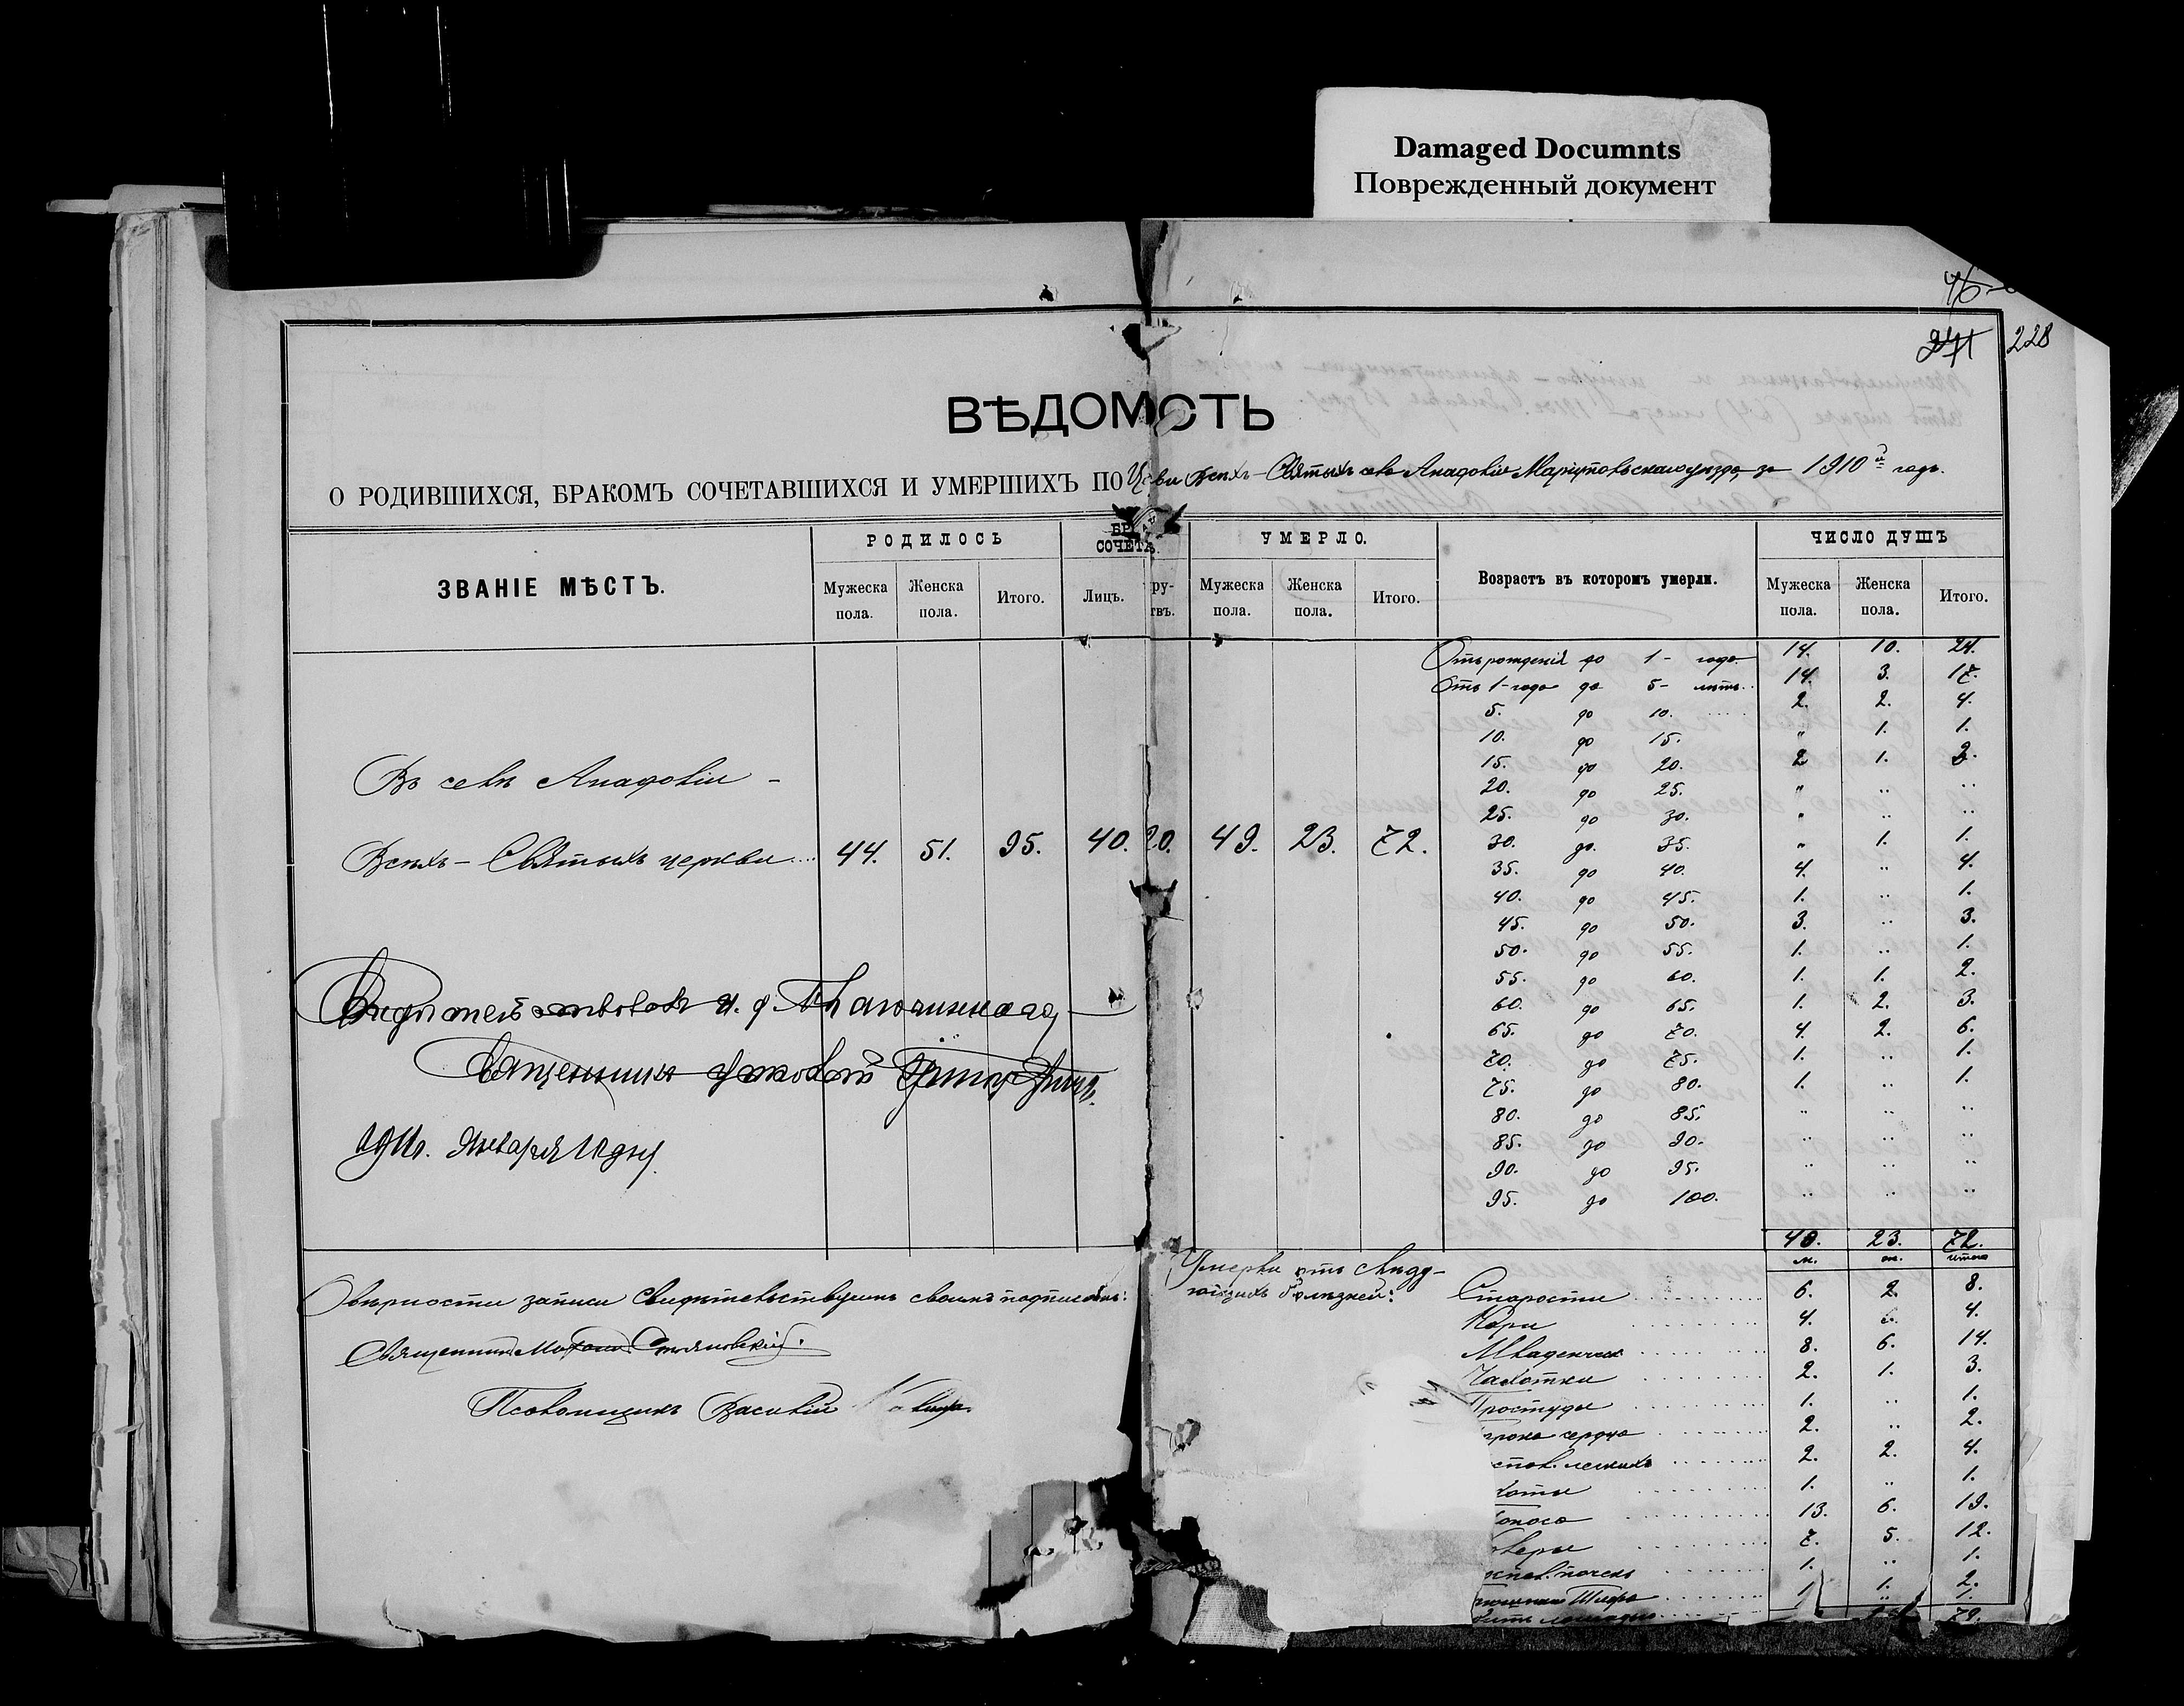 Damaged Documnts
Поврежденный документ
228
ВѢДОМОСТЬ
О РОДИВШИХСЯ, БРАКОМЪ СОЧЕТАВШИХСЯ И УМЕРШИХЪ ПО Цркви Всѣхъ-Святыхъ села Анадоліи Маріупольскаго уѣзда, за 1910й годъ.
ЗВАНІЕ МѢСТЪ. РОДИЛОСЬ БР СОЧЕТА УМЕРЛО. Возрастъ въ которомъ умерли. ЧИСЛО ДУШЪ
Мужеска пола. Женска пола. Итого. Лицъ. ру-твъ. Мужеска пола. Женска пола. Итого. Мужеска пола. Женска пола. Итого.
Отъ рожденія до 1- года 14. 10. 24.
Отъ 1-года до 5- лѣтъ 14. 3. 17.
5. до 10. 2. 2. 4.
10. до 15. " 1. 1.
15. до 20. 2 1. 3.
20. до 25. " " "
25. до 30. " " "
30. до 35. " 1. 1.
35. до 40. 4. " 4.
40. до 45. 1. " 1.
45. до 50. 3. " 3.
50. до 55. 1. " 1.
55. до 60. 1. 1. 2.
60. до 65. 1. 2. 3.
65. до 70. 4. 2. 6.
70. до 75. 1. " 1.
75. до 80. 1. " 1.
80. до 85. " " "
85. до 90. " " "
90. до 95. " " "
95. до 100. " " "
49. 23. 72.
Въ селѣ Анадоліи -
Всѣхъ-Святыхъ церкви 44. 51. 95. 40. 20. 49. 23. 72.
и. д. Благочиннаго,
Священникъ
1911г. Января 10 дня.
О вѣрности записи свидѣтельствуемъ своимъ подписомъ:
Священникъ Стояновскій.
Псаломщикъ Василій
Умерли отъ слѣду-
ющихъ болѣзней:
м. ж. итого
Старости 6. 2. 8.
Кори 4. 4.
Младенческ 8. 6. 14.
Чахотки 2. 1. 3.
Простуды 1. " 1.
порока сердца 2. " 2.
воспал. легкихъ 2. 2. 4.
1. " 1.
Поноса 13. 6. 19.
7. 5. 12.
воспал. почекъ 1. " 1.
Брюшной Тифъ 1. 1. 2.
лошадью " 1.
72.